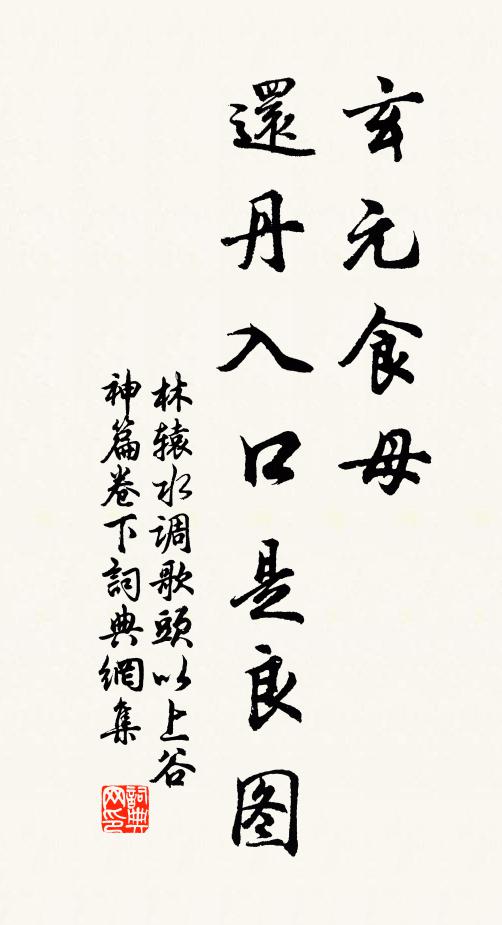 玄元食母
還丹入口是良图
林辕水调歌頭以上谷
神篇卷下詞典網集
詞典网印